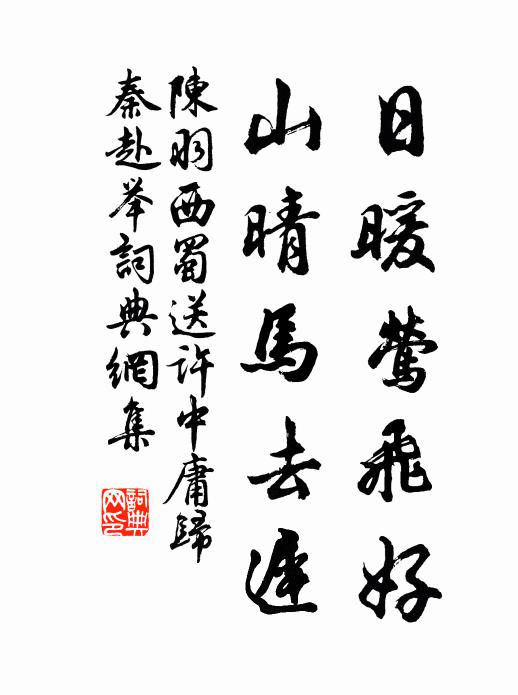 日暖鶯飛好
山晴馬去遲
陳羽西蜀送許中庸歸
秦赴举詞典網集
詞典网印